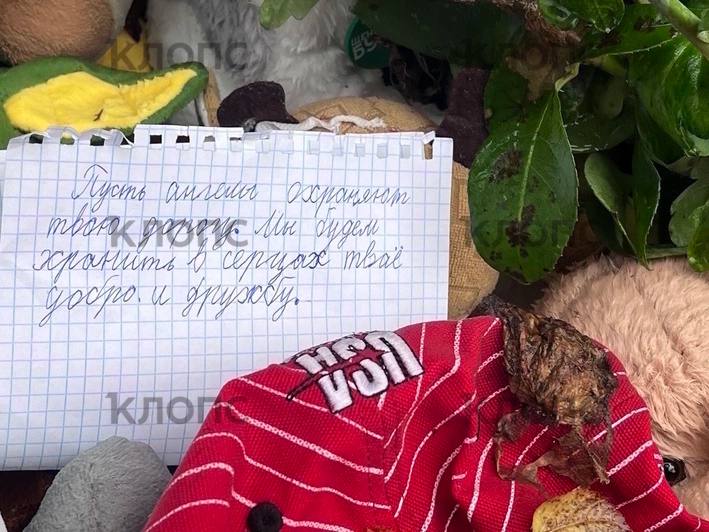 Клопс
Клопс
Пусть ангелы охраняют
твою дорогу. Мы будем
хранить в серцах твоё
добро и дружбу.
Клопс
Клопс
Клопс
Клопс
Клопс
Клопс